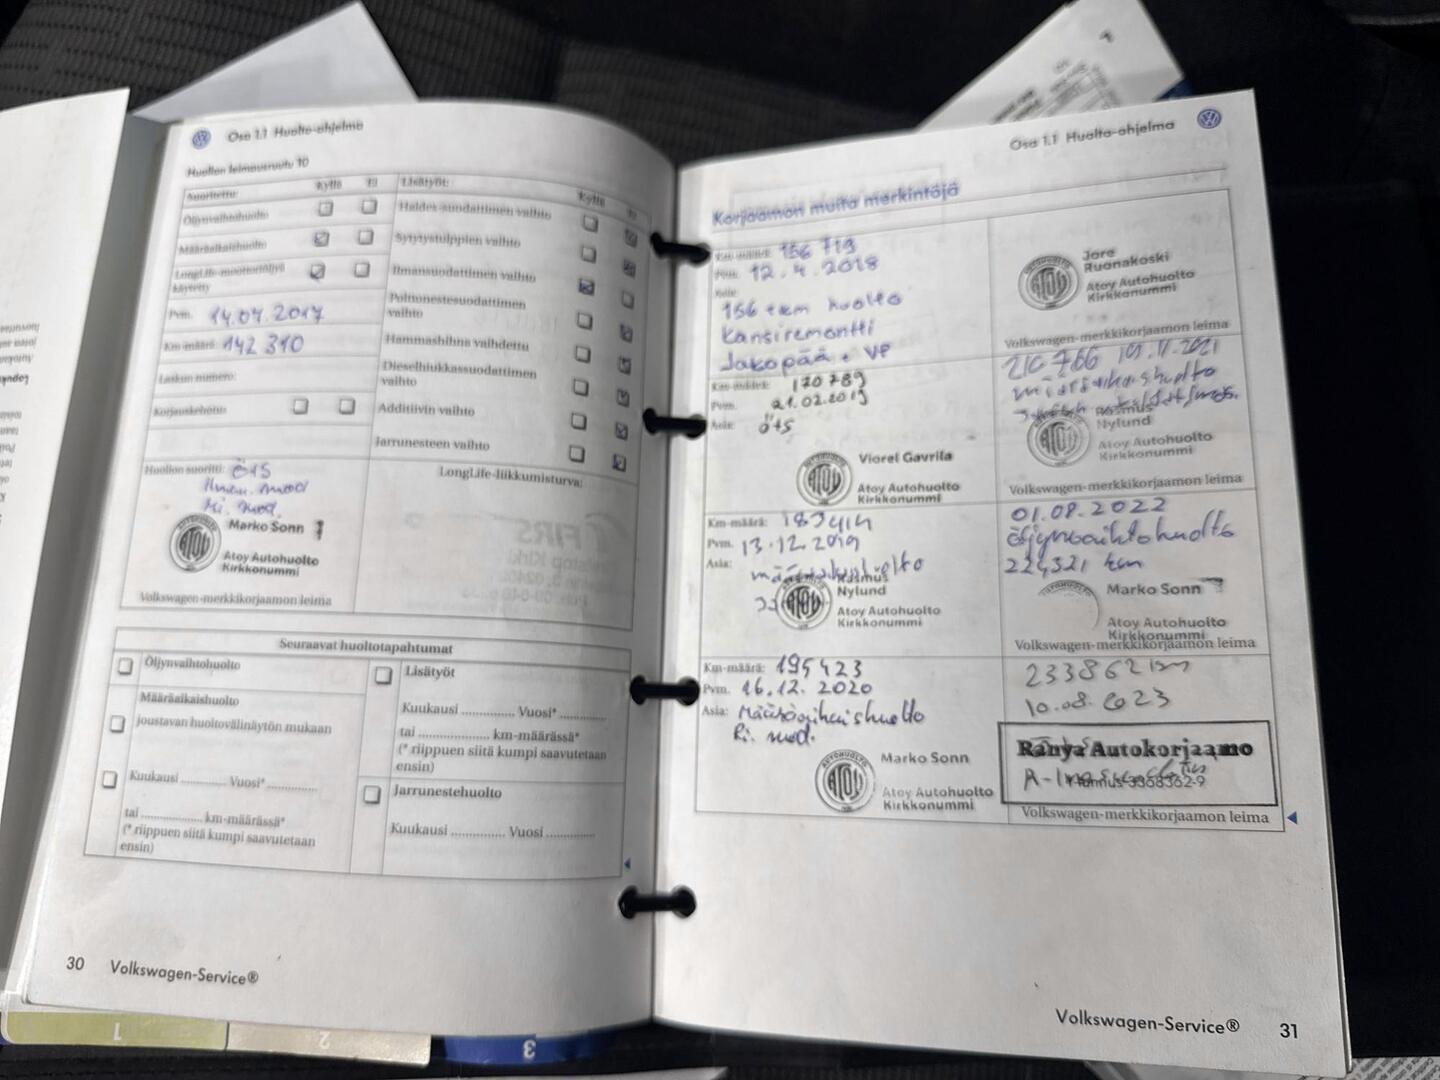 Osa 1.1 Huolto-ohjelma
Huollon leimausruutu 10
Suoritettu: Kyllä Ei
Öljynvaihtohuolto
Määräaikaishuolto
LongLife-moottoriöljyä
käytetty
Pvm. 14.07.2017
Km-määrä: 142 310
Laskun numero:
Korjauskehotus
Huollon suoritti: ö1S
Ri. suod.
Marko Sonn
Atoy Autohuolto
Kirkkonummi
Volkswagen-merkkikorjaamon leima
Lisätyöt: Kyllä Ei
Haldex-suodattimen vaihto
Sytytystulppien vaihto
Ilmansuodattimen vaihto
Polttonestesuodattimen
vaihto
Hammashihna vaihdettu
Dieselhiukkassuodattimen
vaihto
Additiivin vaihto
Jarrunesteen vaihto
LongLife-liikkumisturva:
Seuraavat huoltotapahtumat
Öljynvaihtohuolto
Määräaikaishuolto
joustavan huoltovälinäytön mukaan
Kuukausi .......... Vuosi* ............
tai ..................... km-määrässä*
(* riippuen siitä kumpi saavutetaan
ensin)
Lisätyöt
Kuukausi .............. Vuosi* ............
tai .................... km-määrässä*
(* riippuen siitä kumpi saavutetaan
ensin)
Jarrunestehuolto
Kuukausi .............. Vuosi .............
30 Volkswagen-Service®
1
2
3
Osa 1.1 Huolto-ohjelma
Korjaamon muita merkintöjä
Km-määrä: 156 719
Pvm. 12.4.2018
156 tkm huolto
Kansiremontti
Jakopää + VP
Jore
Ruonakoski
Atoy Autohuolto
Kirkkonummi
Volkswagen-merkkikorjaamon leima
Km-määrä: 170 789
Pvm. 21.02.2019
Asia: ö1S
Viorel Gavrila
Atoy Autohuolto
Kirkkonummi
210 766 19.11.2021
määräaikaishuolto
Rasmus
Nylund
Atoy Autohuolto
Kirkkonummi
Volkswagen-merkkikorjaamon leima
Km-määrä: 183414
Pvm. 13.12.2019
Asia: määräaikaishuolto
Rasmus
Nylund
Atoy Autohuolto
Kirkkonummi
01.08.2022
öljynvaihtohuolto
224321 km
Marko Sonn
Atoy Autohuolto
Kirkkonummi
Volkswagen-merkkikorjaamon leima
Km-määrä: 195423
Pvm. 16.12.2020
Asia: Määräaikaishuolto
Ri. suod.
Marko Sonn
Atoy Autohuolto
Kirkkonummi
233862 km
10.08.2023
Ranya Autokorjaamo
Volkswagen-merkkikorjaamon leima
Volkswagen-Service® 31